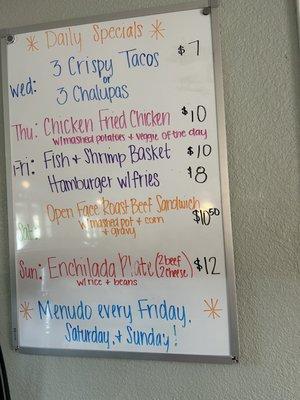 * Daily Specials *
wed: 3 Crispy Tacos $7
or
3 Chalupas
Thu: Chicken Fried Chicken $10
w/mashed potatoes + veggie of the day
Fri: Fish + Shrimp Basket $10
Hamburger w/fries $8
Open Face Roast Beef Sandwich
Sat: w/mashed pot + corn $10.50
+ gravy
Sun: Enchilada Plate (2 beef 2 cheese) $12
w/rice + beans
* Menudo every Friday, *
Saturday, + Sunday!